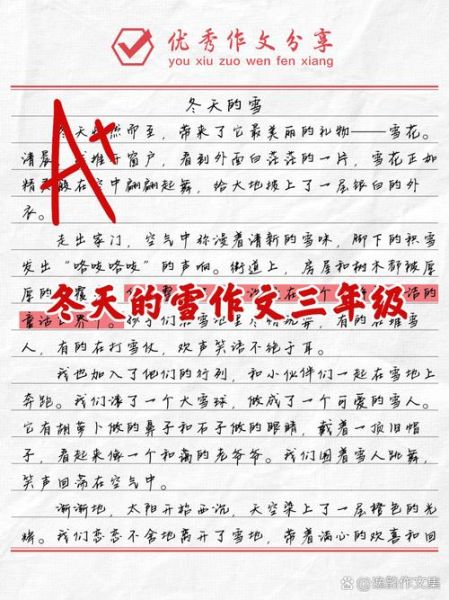 优秀作文分享
you xiu zuo wen fen xiang
冬天的雪
A+
冬天 然而至，带来了它最美丽的礼物——雪花。
清晨， 推开窗户，看到外面白茫茫的一片，雪花正如
精 般在空中翩翩起舞，给大地披上了一层银白的外
衣。
走出家门，空气中弥漫着清新的雪味，脚下的积雪
发出“咯吱咯吱”的声响。街道上，房屋和树木都被厚
厚的
冬天的雪作文三年级
在 个 话的
童话 界 。孩子们在雪地里尽情玩耍，有的在堆雪
人，有的在打雪仗，欢声笑语不绝于耳。
我也加入了他们的行列，和小伙伴们一起在雪地上
奔跑。我们滚了一个大雪球，做成了一个可爱的雪人。
它有胡萝卜做的鼻子和石子做的眼睛，戴着一顶旧帽
子，看起来像一个和蔼的老爷爷。我们围着雪人跳舞，
笑声回荡在空气中。
渐渐地，太阳开始西沉，天空染上了一层橙色的光
辉。我们恋恋不舍地离开了雪地，带着满心的欢喜和回
逸韶作文集